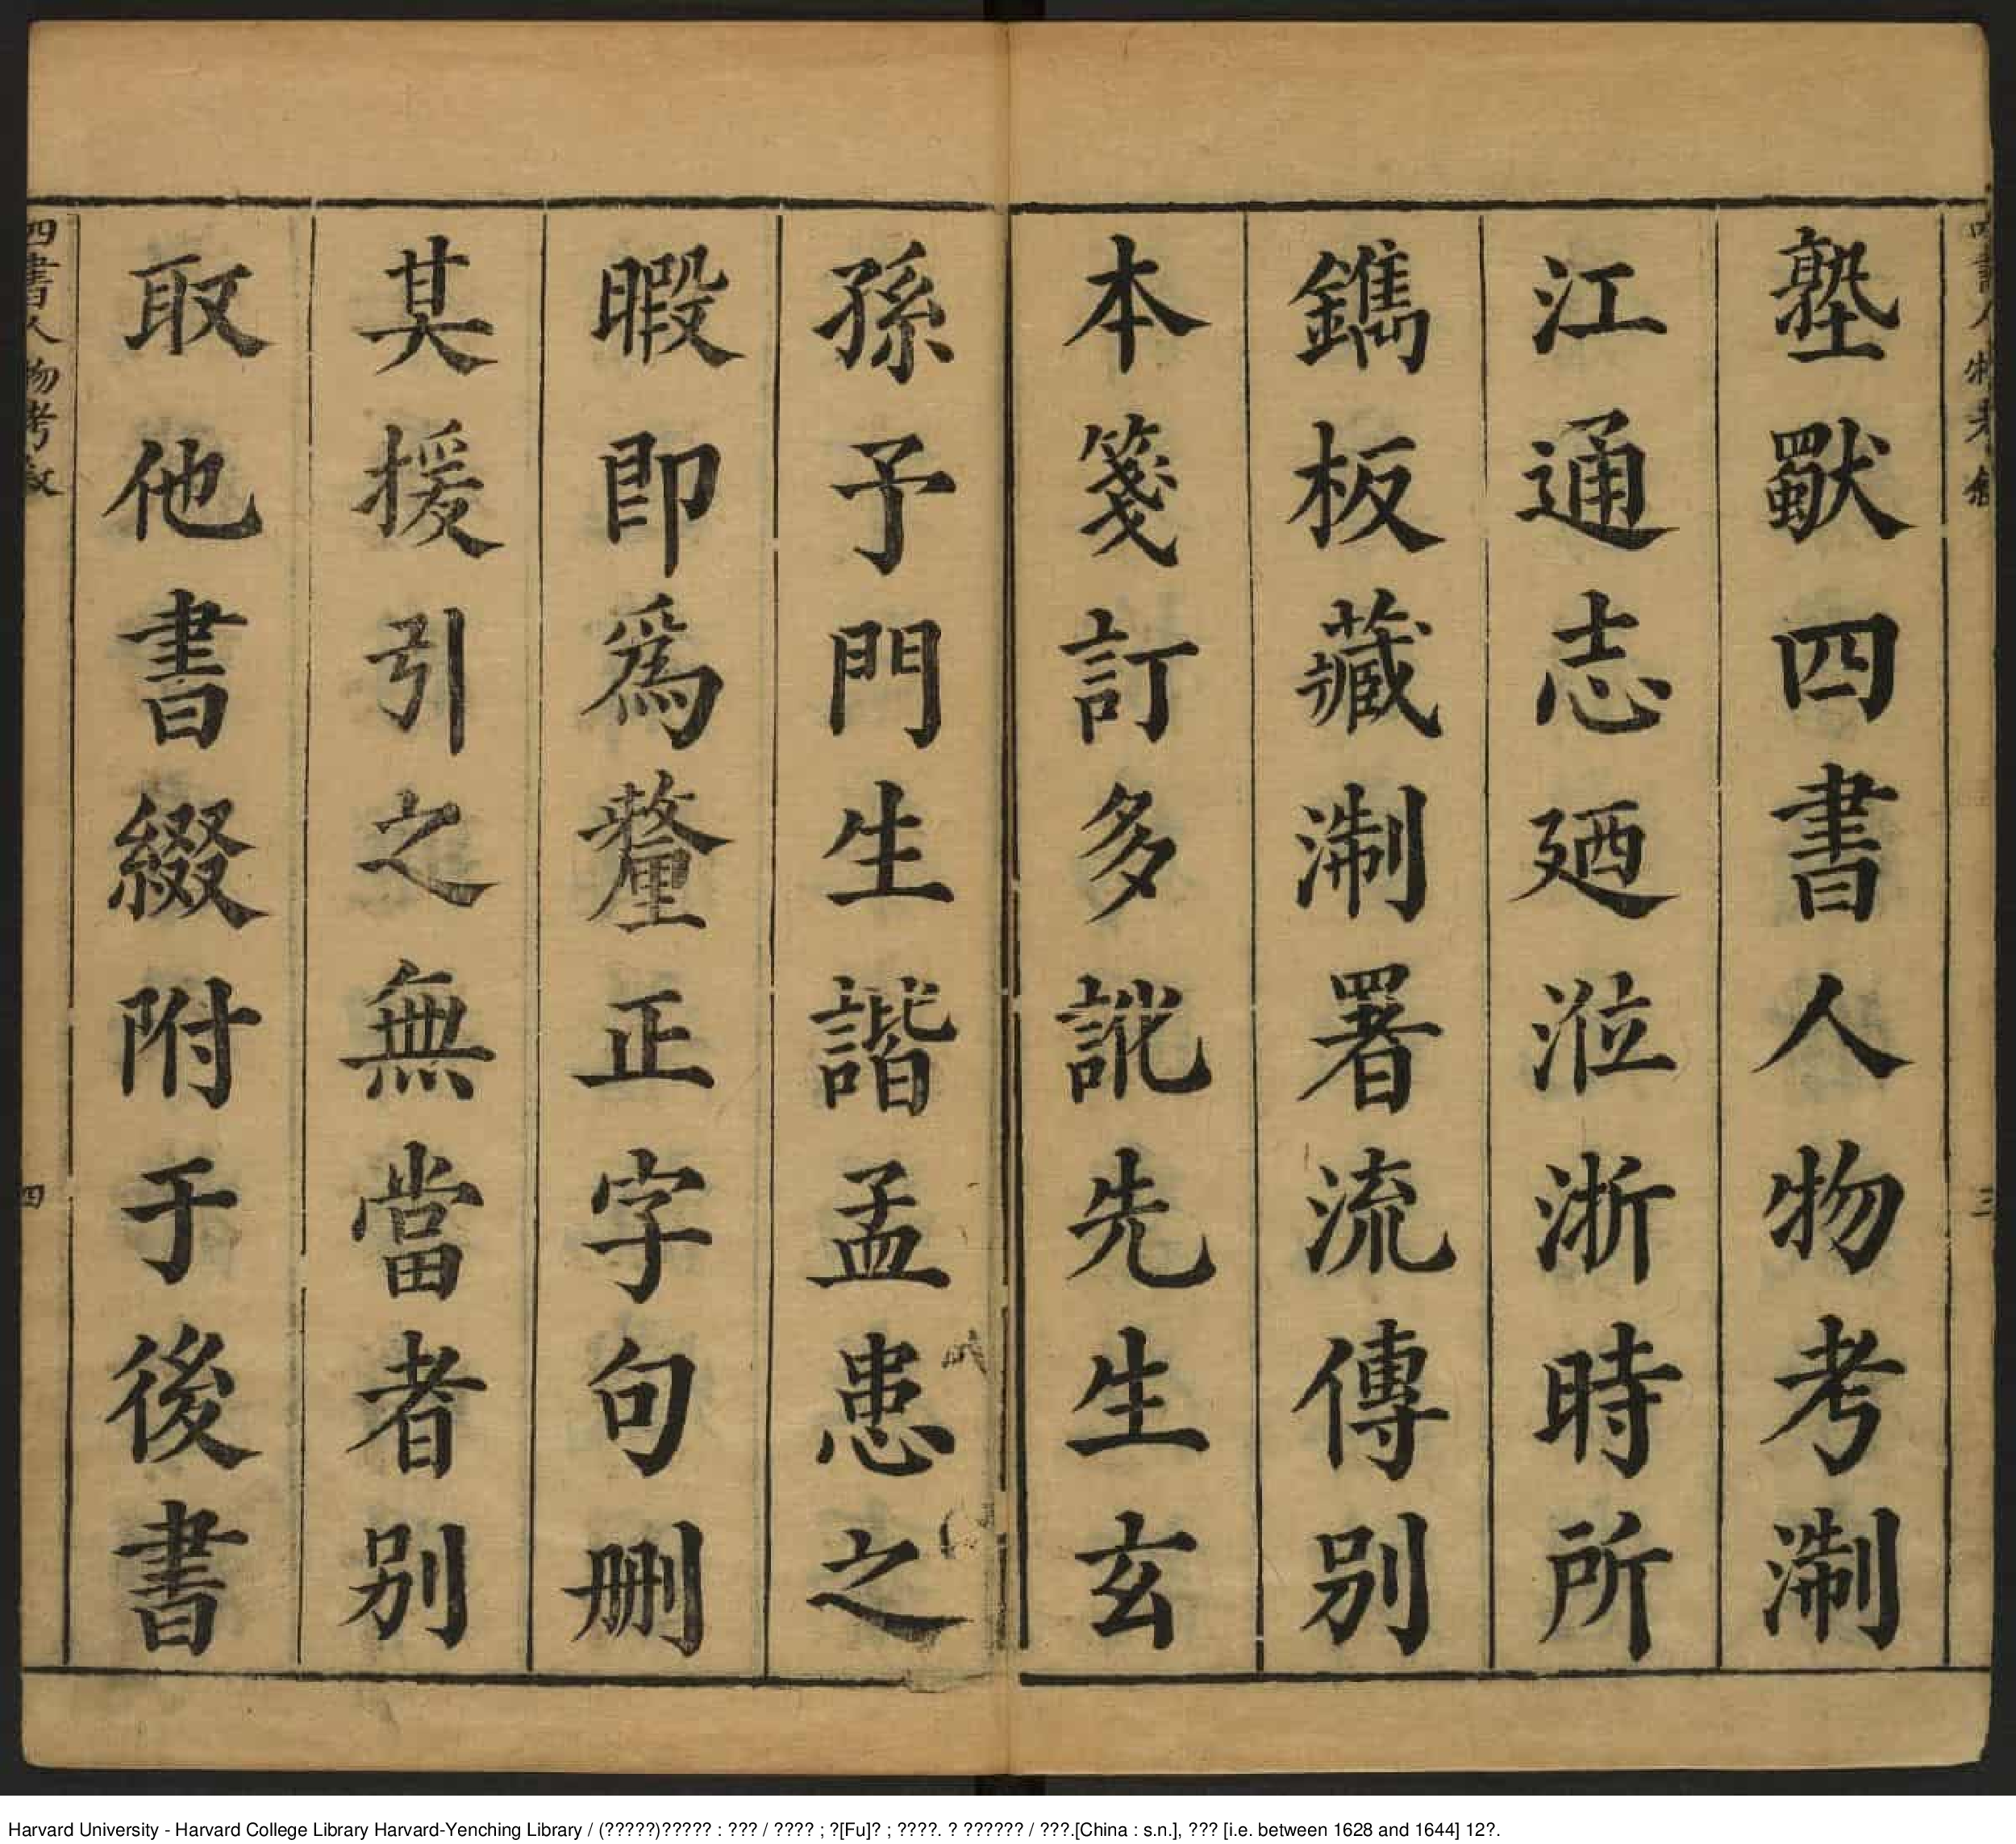 塾獨四書人物考淛
江通志廼涖浙時所
鐫板藏淛署流傳別
本箋訂多訛先生玄
孫予門生諧孟患之
暇即爲釐正字句刪
其援引之無當者別
取他書綴附于後書
四書人物考敘
四
Harvard University - Harvard College Library Harvard-Yenching Library / (?????)????? : ??? / ???? ; ?[Fu]? ; ????. ? ?????? / ???.[China : s.n.], ??? [i.e. between 1628 and 1644] 12?.